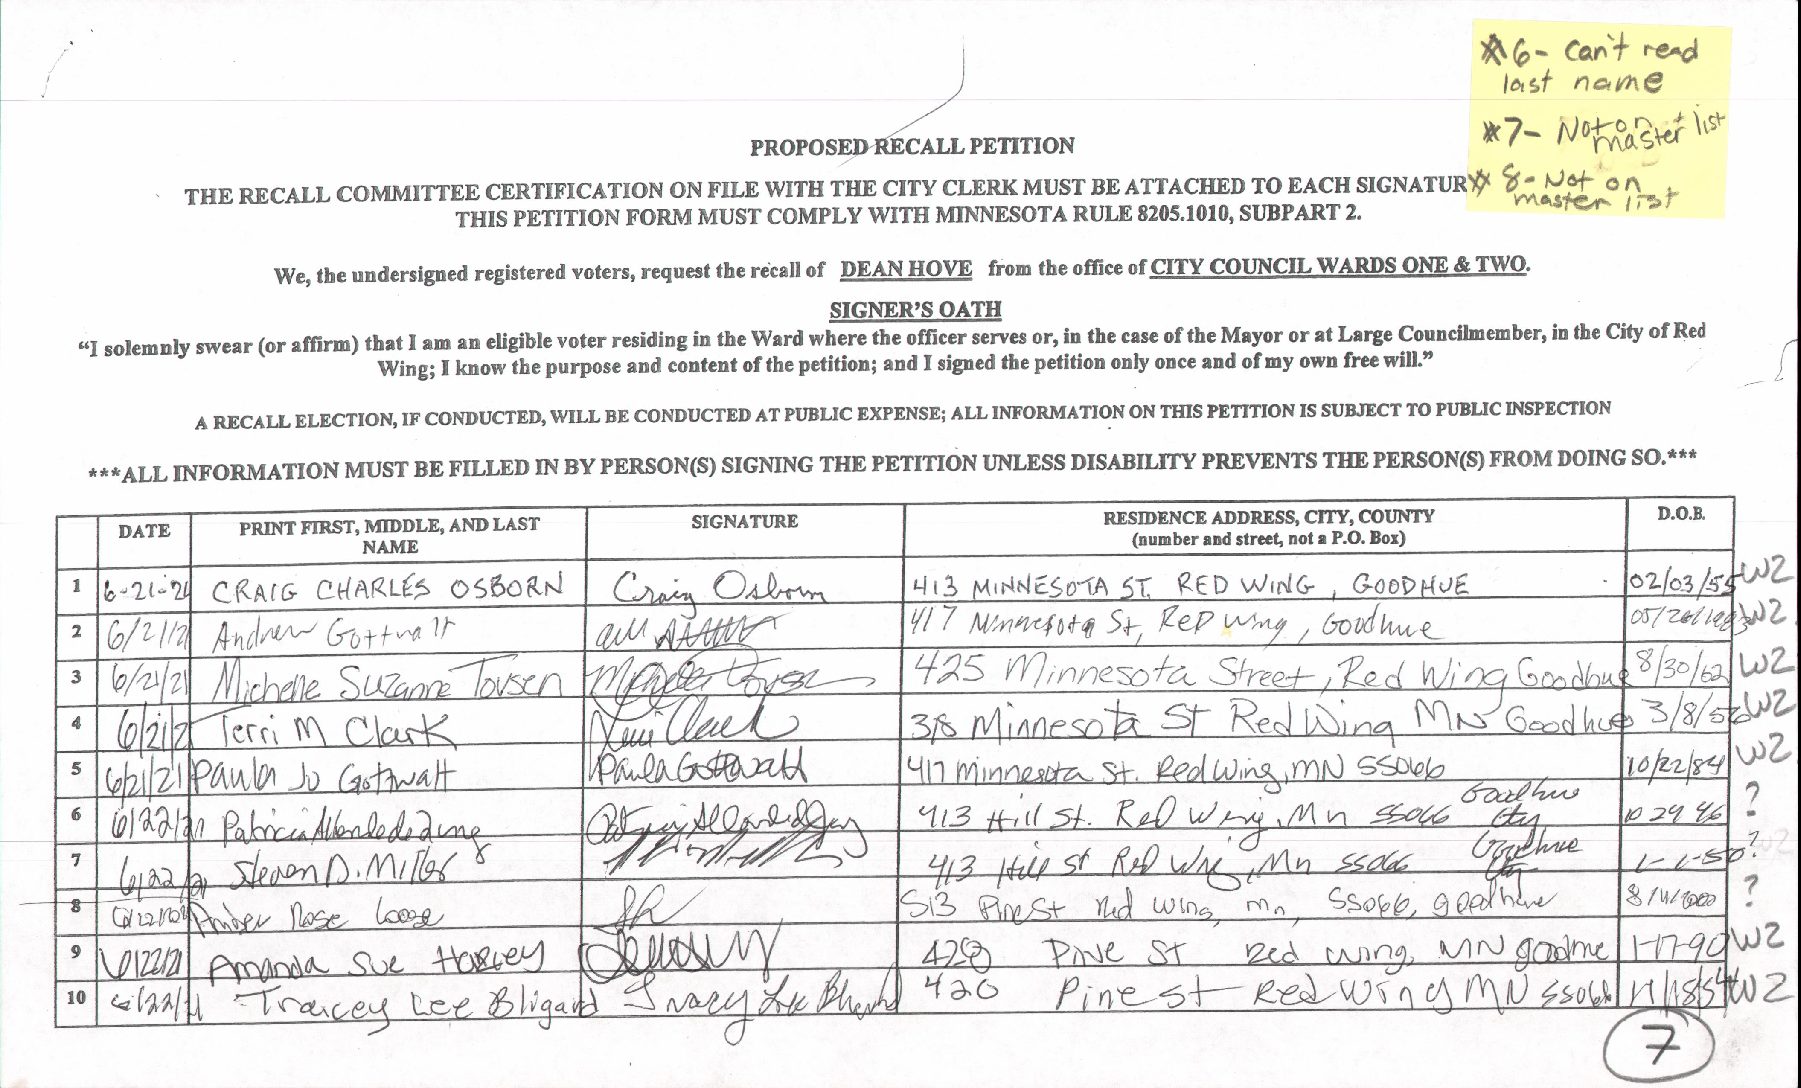 #6- Can't read
last name
#7- Not on
master list
# 8- Not on
master list
PROPOSED RECALL PETITION
THE RECALL COMMITTEE CERTIFICATION ON FILE WITH THE CITY CLERK MUST BE ATTACHED TO EACH SIGNATUR
THIS PETITION FORM MUST COMPLY WITH MINNESOTA RULE 8205.1010, SUBPART 2.
We, the undersigned registered voters, request the recall of DEAN HOVE from the office of CITY COUNCIL WARDS ONE & TWO.
SIGNER'S OATH
"I solemnly swear (or affirm) that I am an eligible voter residing in the Ward where the officer serves or, in the case of the Mayor or at Large Councilmember, in the City of Red
Wing; I know the purpose and content of the petition; and I signed the petition only once and of my own free will."
A RECALL ELECTION, IF CONDUCTED, WILL BE CONDUCTED AT PUBLIC EXPENSE; ALL INFORMATION ON THIS PETITION IS SUBJECT TO PUBLIC INSPECTION
***ALL INFORMATION MUST BE FILLED IN BY PERSON(S) SIGNING THE PETITION UNLESS DISABILITY PREVENTS THE PERSON(S) FROM DOING SO.***
DATE PRINT FIRST, MIDDLE, AND LAST SIGNATURE RESIDENCE ADDRESS, CITY, COUNTY D.O.B.
NAME (number and street, not a P.O. Box)
1 6-21-21 CRAIG CHARLES OSBORN Craig Osborn 413 MINNESOTA ST. RED WING, GOODHUE 02/03/55 W2
2 6/21/21 Andrew Gottwalt 417 Minnesota St, Red Wing, Goodhue W2
3 6/21/21 Michelle Suzanne Tousen 425 Minnesota Street, Red Wing Goodhue 8/30/62 W2
4 6/21/2 Terri M Clark Terri Clark 318 Minnesota St Red Wing MN Goodhue 3/8/56 W2
5 6/21/21 Paula Jo Gottwalt Paula Gottwalt 417 Minnesota St. Red Wing, MN 55066 10/22/84 W2
6 6/22/21 Patricia 413 Hill St. Red Wing, Mn 55066 Goodhue 10 29 46 ?
7 6/22/21 Steven D. Miller 413 Hill St Red Wing, Mn 55066 Goodhue 1-1-50 ?
8 Amber Rose Loose 513 Pine St Red Wing, mn, 55066, goodhue ?
9 6/22/21 Amanda Sue Harvey 420 Pine St Red Wing, MN 1-17-90 W2
10 6/22/21 Tracey Lee Bligard 420 Pine St Red Wing MN 55066 11/18/54 W2
7